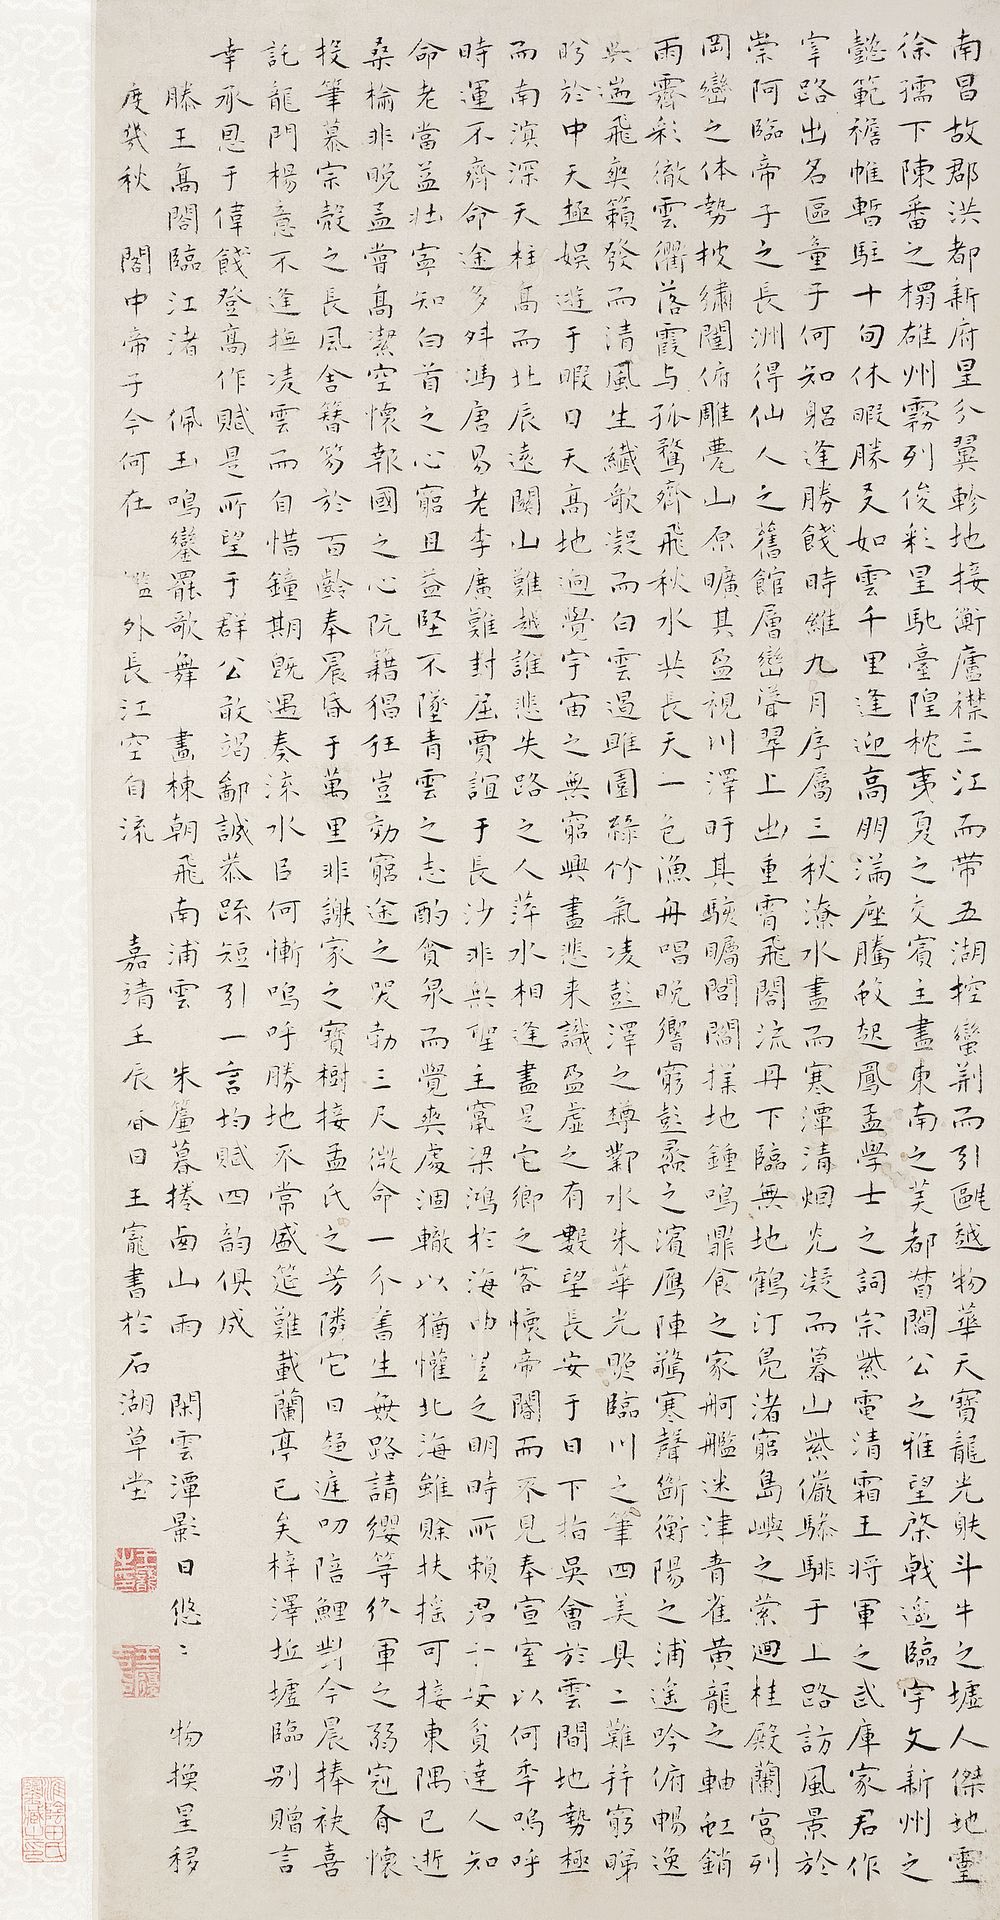 南昌故郡洪都新府星分翼軫地接衡廬襟三江而帶五湖控蠻荆而引甌越物華天寶龍光射斗牛之墟人傑地靈
徐孺下陳蕃之榻雄州霧列俊彩星馳臺隍枕夷夏之交賓主盡東南之美都督閻公之雅望棨戟遙臨宇文新州之
懿範襜帷暫駐十旬休暇勝友如雲千里逢迎高朋滿座騰蛟起鳳孟學士之詞宗紫電清霜王將軍之武庫家君作
宰路出名區童子何知躬逢勝餞時維九月序屬三秋潦水盡而寒潭清烟光凝而暮山紫儼驂騑于上路訪風景於
崇阿臨帝子之長洲得仙人之舊館層巒聳翠上出重霄飛閣流丹下臨無地鶴汀鳧渚窮島嶼之縈迴桂殿蘭宮列
岡巒之体勢披繡闥俯雕甍山原曠其盈視川澤盱其駭矚閭閻撲地鍾鳴鼎食之家舸艦迷津青雀黃龍之軸虹銷
雨霽彩徹雲衢落霞与孤鶩齊飛秋水共長天一色漁舟唱晚響窮彭蠡之濱鴈陣驚寒聲斷衡陽之浦遙吟俯暢逸
興遄飛爽籟發而清風生纖歌凝而白雲過睢園綠竹氣凌彭澤之樽鄴水朱華光照臨川之筆四美具二難并窮睇
眄於中天極娛遊于暇日天高地迥覺宇宙之無窮興盡悲来識盈虛之有數望長安于日下指吳會於雲間地勢極
而南溟深天柱高而北辰遠關山難越誰悲失路之人萍水相逢盡是它鄉之客懷帝閽而不見奉宣室以何年嗚呼
時運不齊命途多舛馮唐易老李廣難封屈賈誼于長沙非無聖主竄梁鴻於海曲豈乏明時所賴君子安貧達人知
命老當益壯寧知白首之心窮且益堅不墜青雲之志酌貪泉而覺爽處涸轍以猶懽北海雖賒扶搖可接東隅已逝
桑榆非晚孟嘗高潔空懷報國之心阮籍猖狂豈効窮途之哭勃三尺微命一介書生無路請纓等終軍之弱冠有懷
投筆慕宗愨之長風舍簪笏於百齡奉晨昏于萬里非謝家之寶樹接孟氏之芳隣它日趨庭叨陪鯉對今晨捧袂喜
託龍門楊意不逢撫凌雲而自惜鐘期既遇奏流水臣何慚嗚呼勝地不常盛筵難載蘭亭已矣梓澤坵墟臨别贈言
幸承恩于偉餞登高作賦是所望于群公敢竭鄙誠恭疏短引一言均賦四韵俱成
滕王高閣臨江渚 佩玉鳴鑾罷歌舞 畫棟朝飛南浦雲 朱簾暮捲西山雨 閑雲潭影日悠〻 物換星移
度幾秋 閣中帝子今何在 檻外長江空自流 嘉靖壬辰春日王寵書於石湖草堂